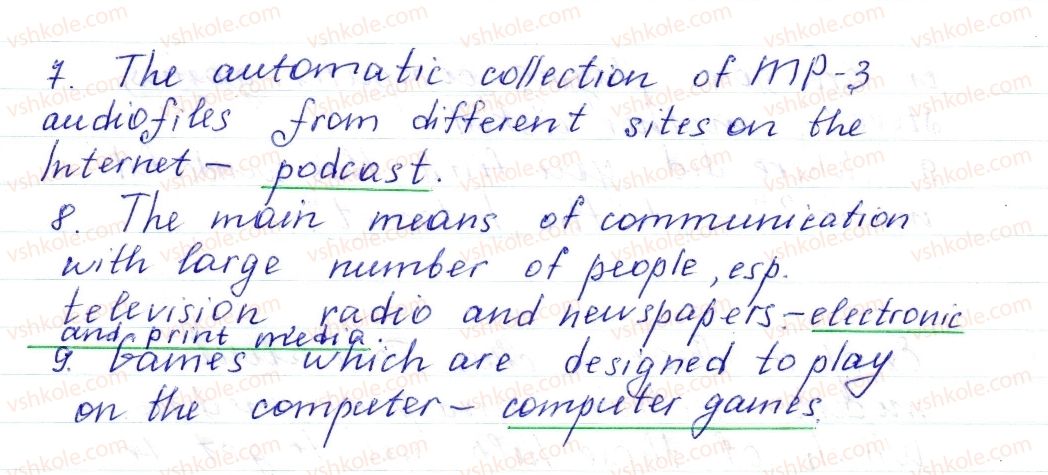 7. The automatic collection of MP-3
audiofiles from different sites on the
Internet – podcast.
8. The main means of communication
with large number of people, esp.
television radio and newspapers – electronic
and print media.
9. Games which are designed to play
on the computer – computer games.